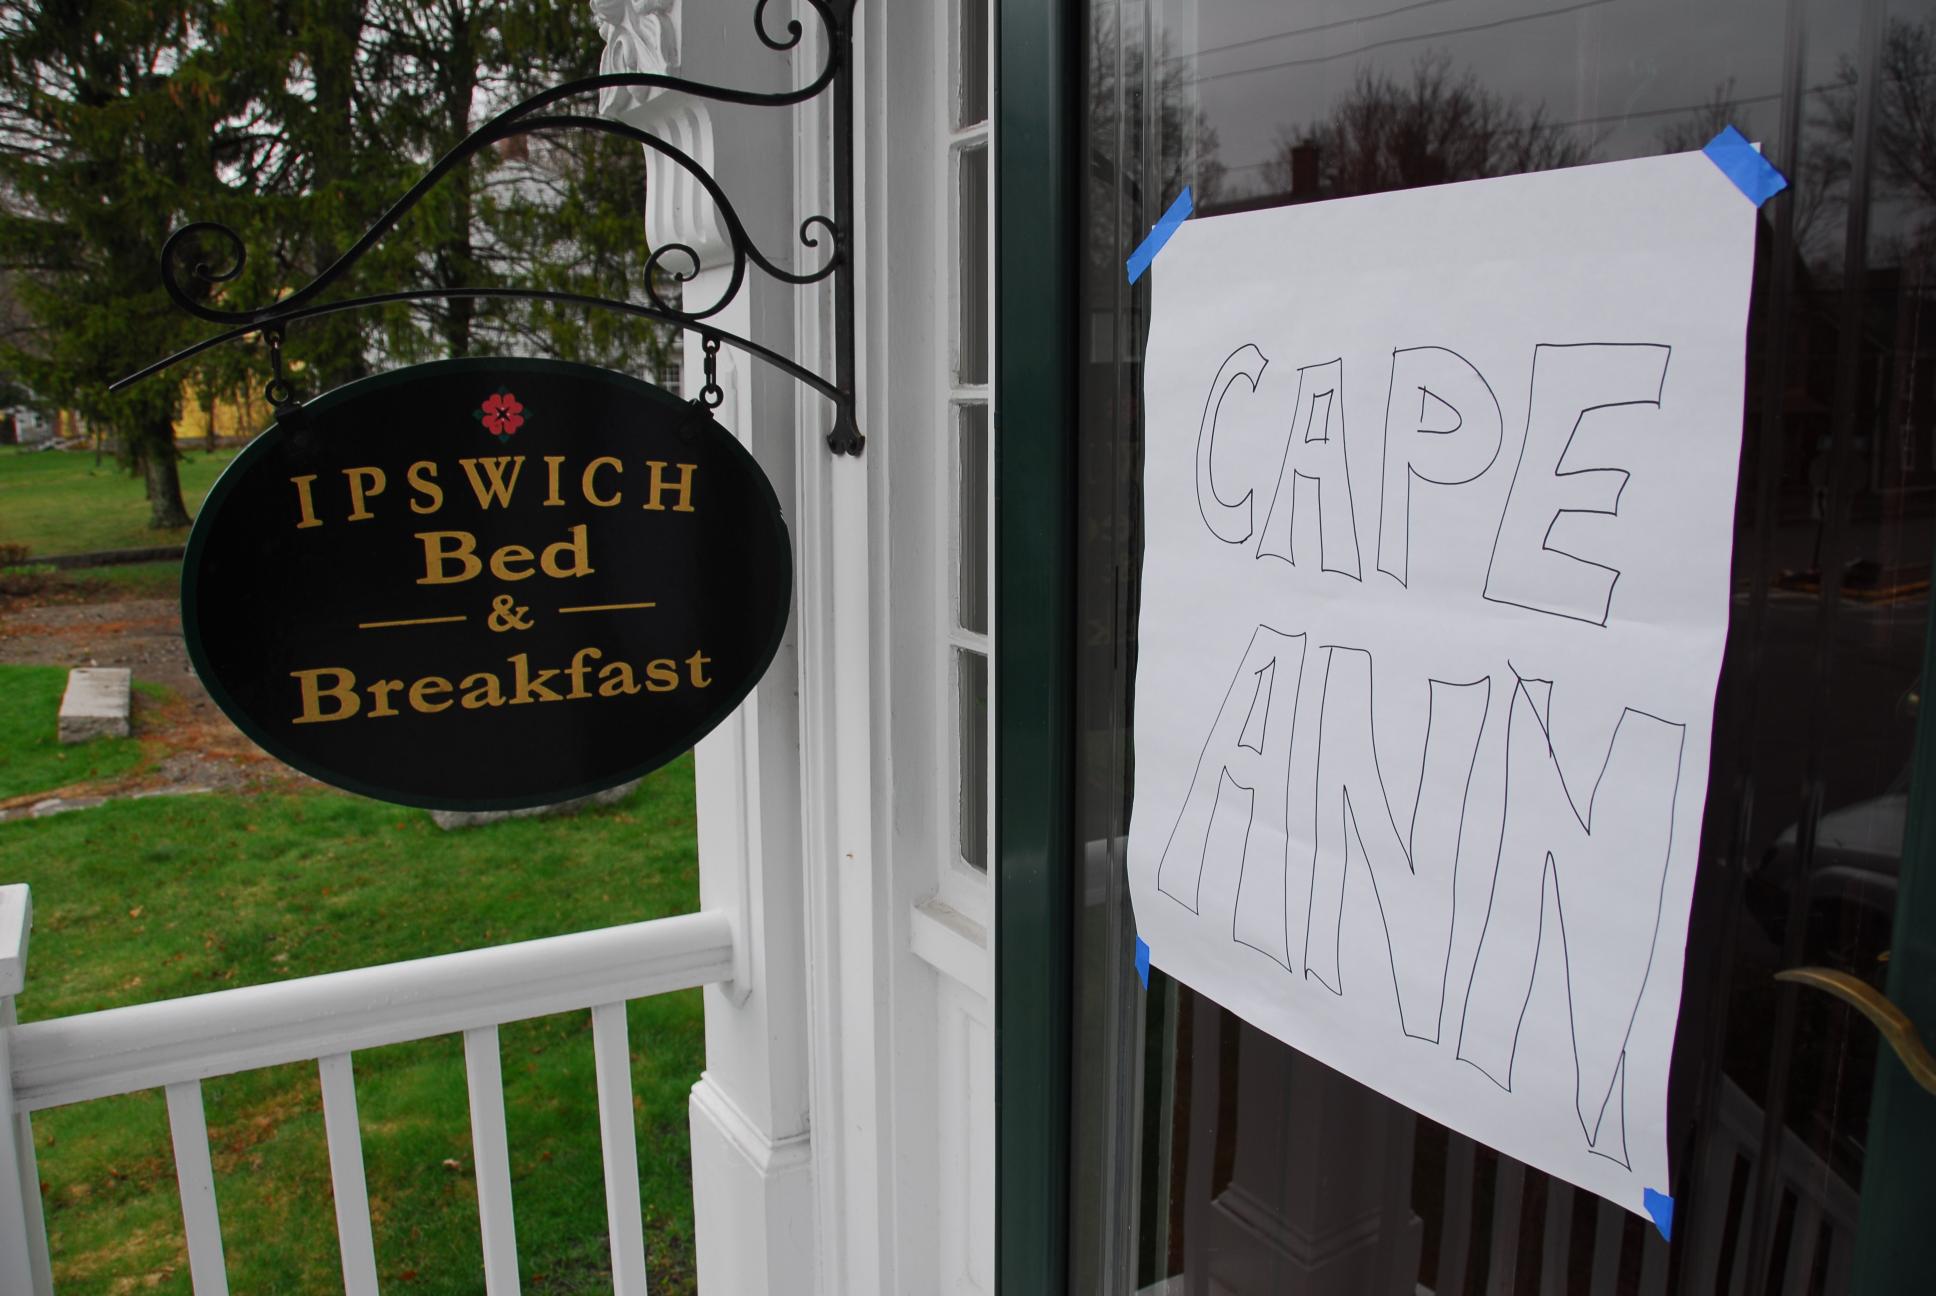 IPSWICH
Bed
&
Breakfast
CAPE
ANN